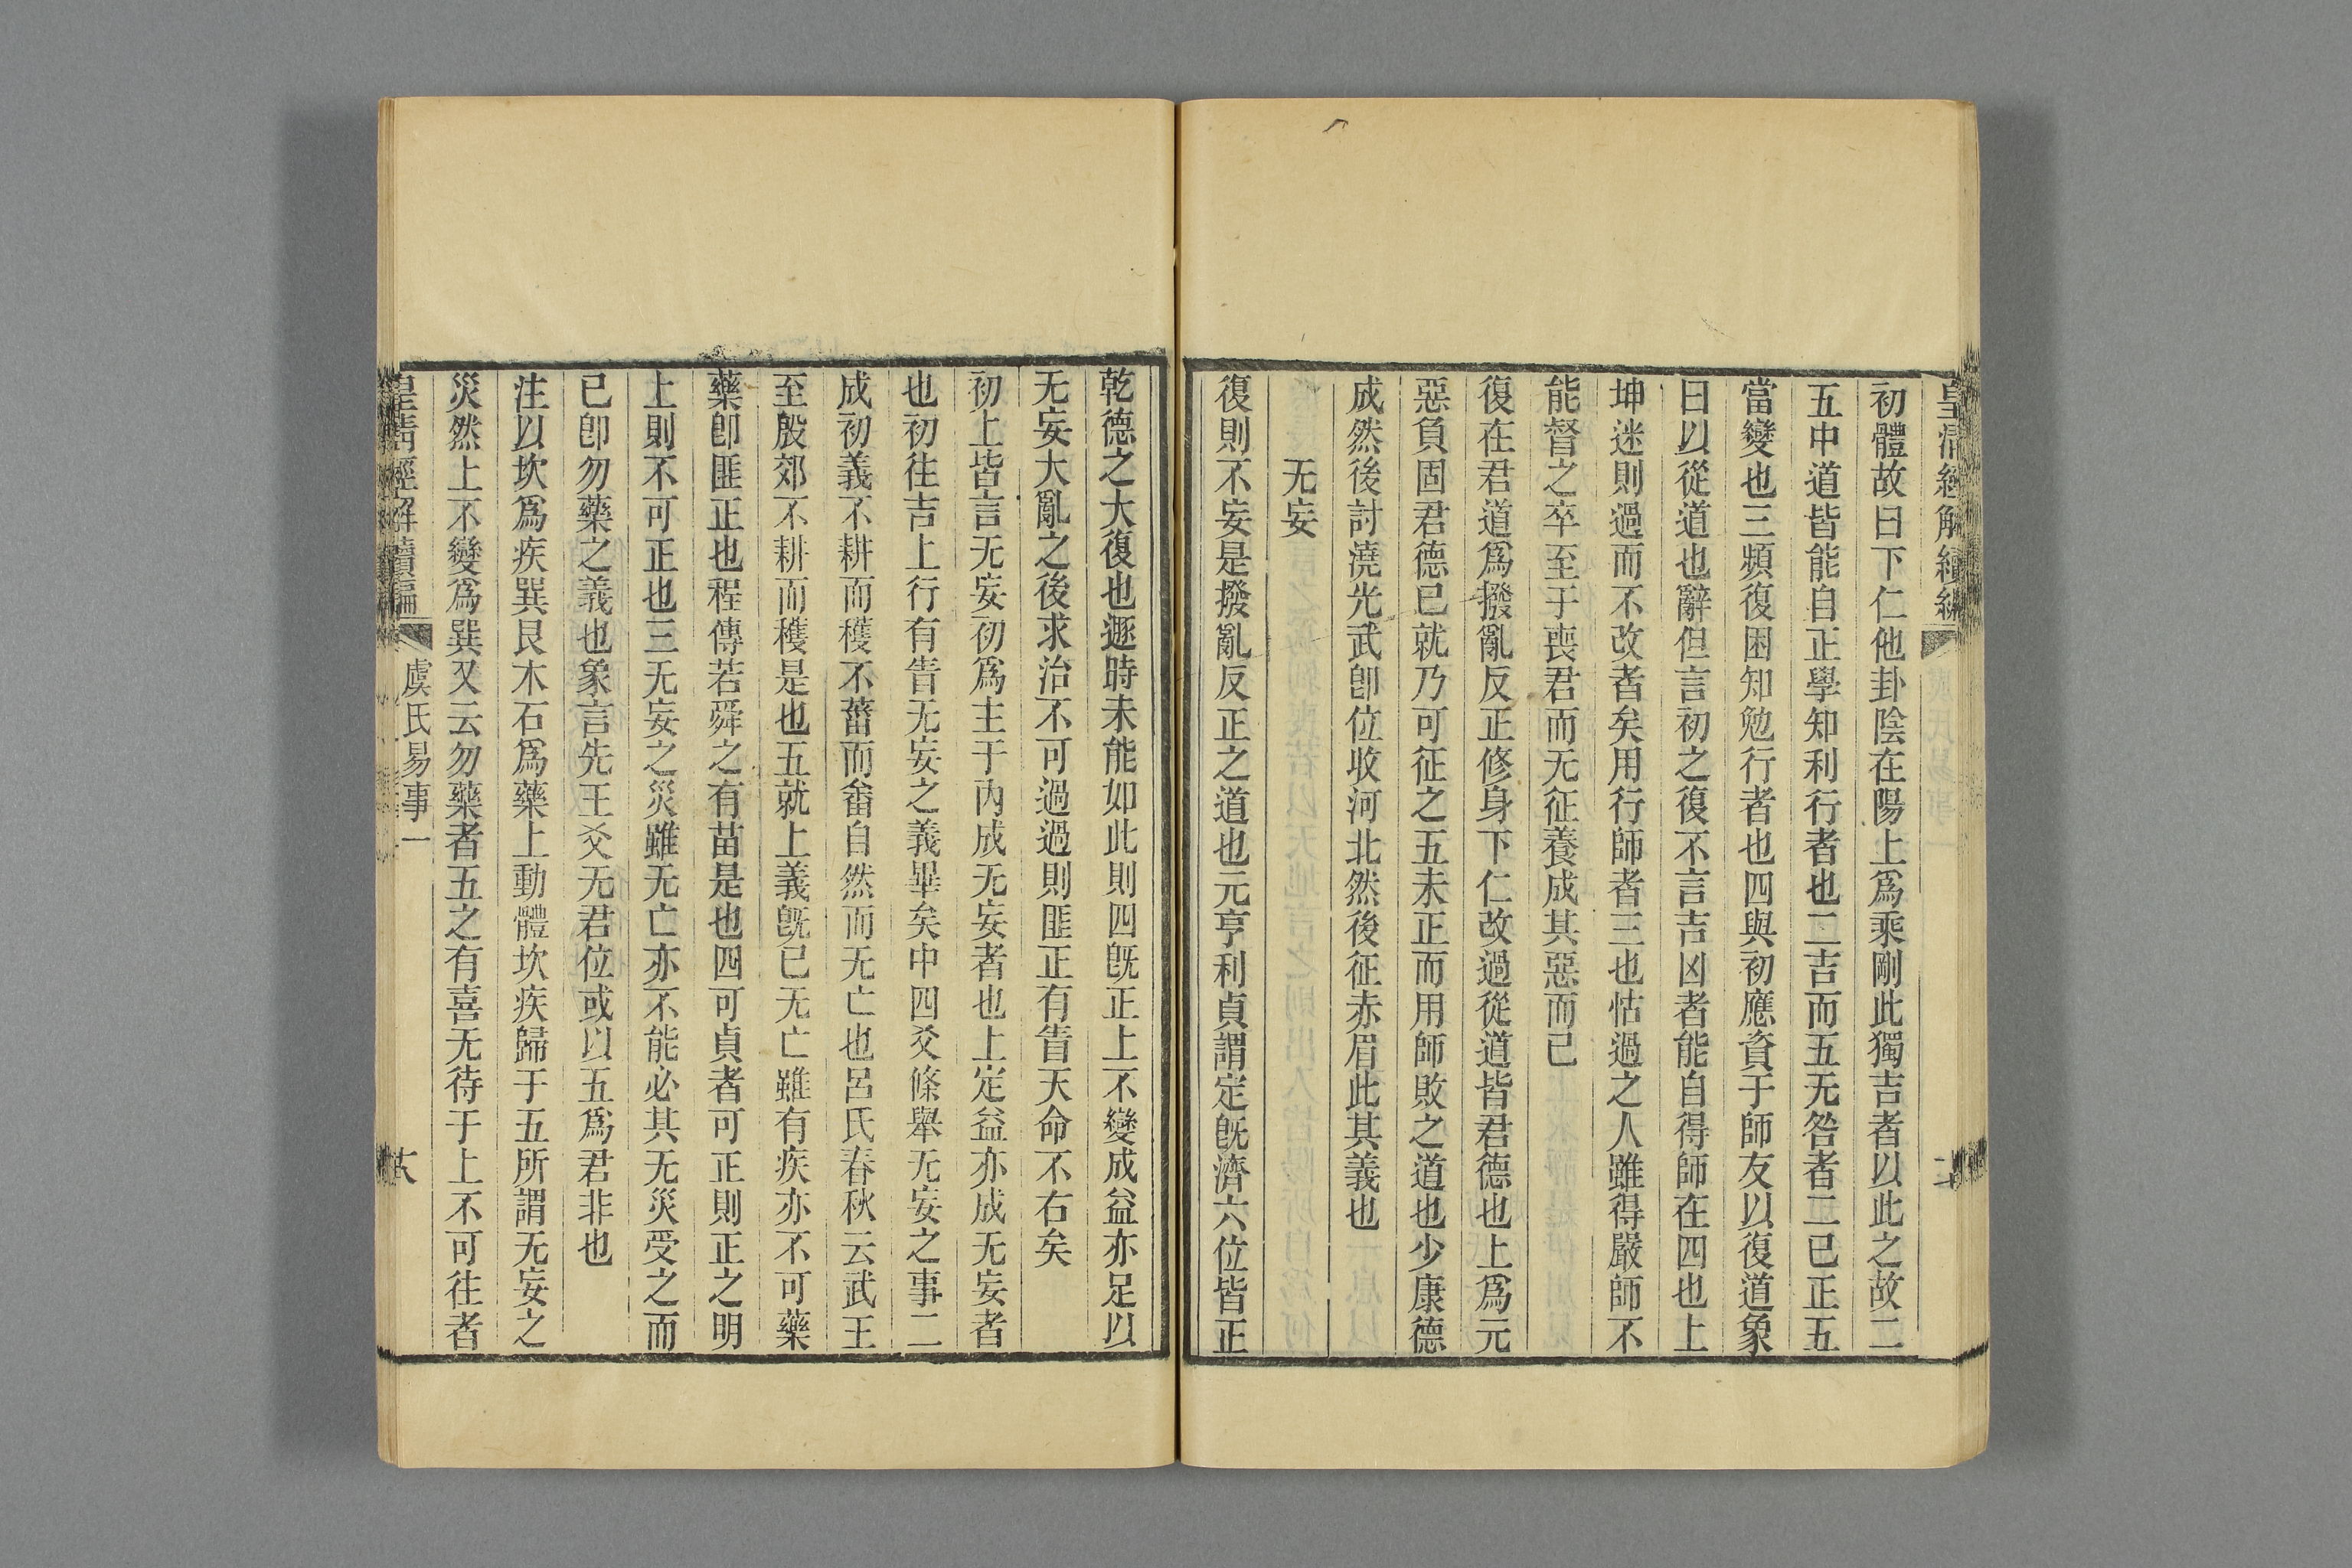 初體故曰下仁他卦陰在陽上爲乘剛此獨吉者以此之故二
五中道皆能自正學知利行者也二吉而五无咎者二已正五
當變也三頻復困知勉行者也四與初應資于師友以復道象
曰以從道也辭但言初之復不言吉凶者能自得師在四也上
坤迷則過而不改者矣用行師者三也怙過之人雖得嚴師不
能督之卒至于喪君而无征養成其惡而已
復在君道爲撥亂反正修身下仁改過從道皆君德也上爲元
惡負固君德已就乃可征之五未正而用師敗之道也少康德
成然後討澆光武卽位收河北然後征赤眉此其義也
无妄
復則不妄是撥亂反正之道也元亨利貞謂定旣濟六位皆正
乾德之大復也遯時未能如此則四旣正上不變成益亦足以
无妄大亂之後求治不可過過則匪正有眚天命不右矣
初上皆言无妄初爲主于內成无妄者也上定益亦成无妄者
也初往吉上行有眚无妄之義畢矣中四爻條舉无妄之事二
成初義不耕而穫不菑而畬自然而无亡也呂氏春秋云武王
至殷郊不耕而穫是也五就上義旣已无亡雖有疾亦不可藥
藥卽匪正也程傳若舜之有苗是也四可貞者可正則正之明
上則不可正也三无妄之災雖无亡亦不能必其无災受之而
已卽勿藥之義也象言先王爻无君位或以五爲君非也
注以坎爲疾巽艮木石爲藥上動體坎疾歸于五所謂无妄之
災然上不變爲巽又云勿藥者五之有喜无待于上不可往者
皇淸經解續編
虞氏易事一